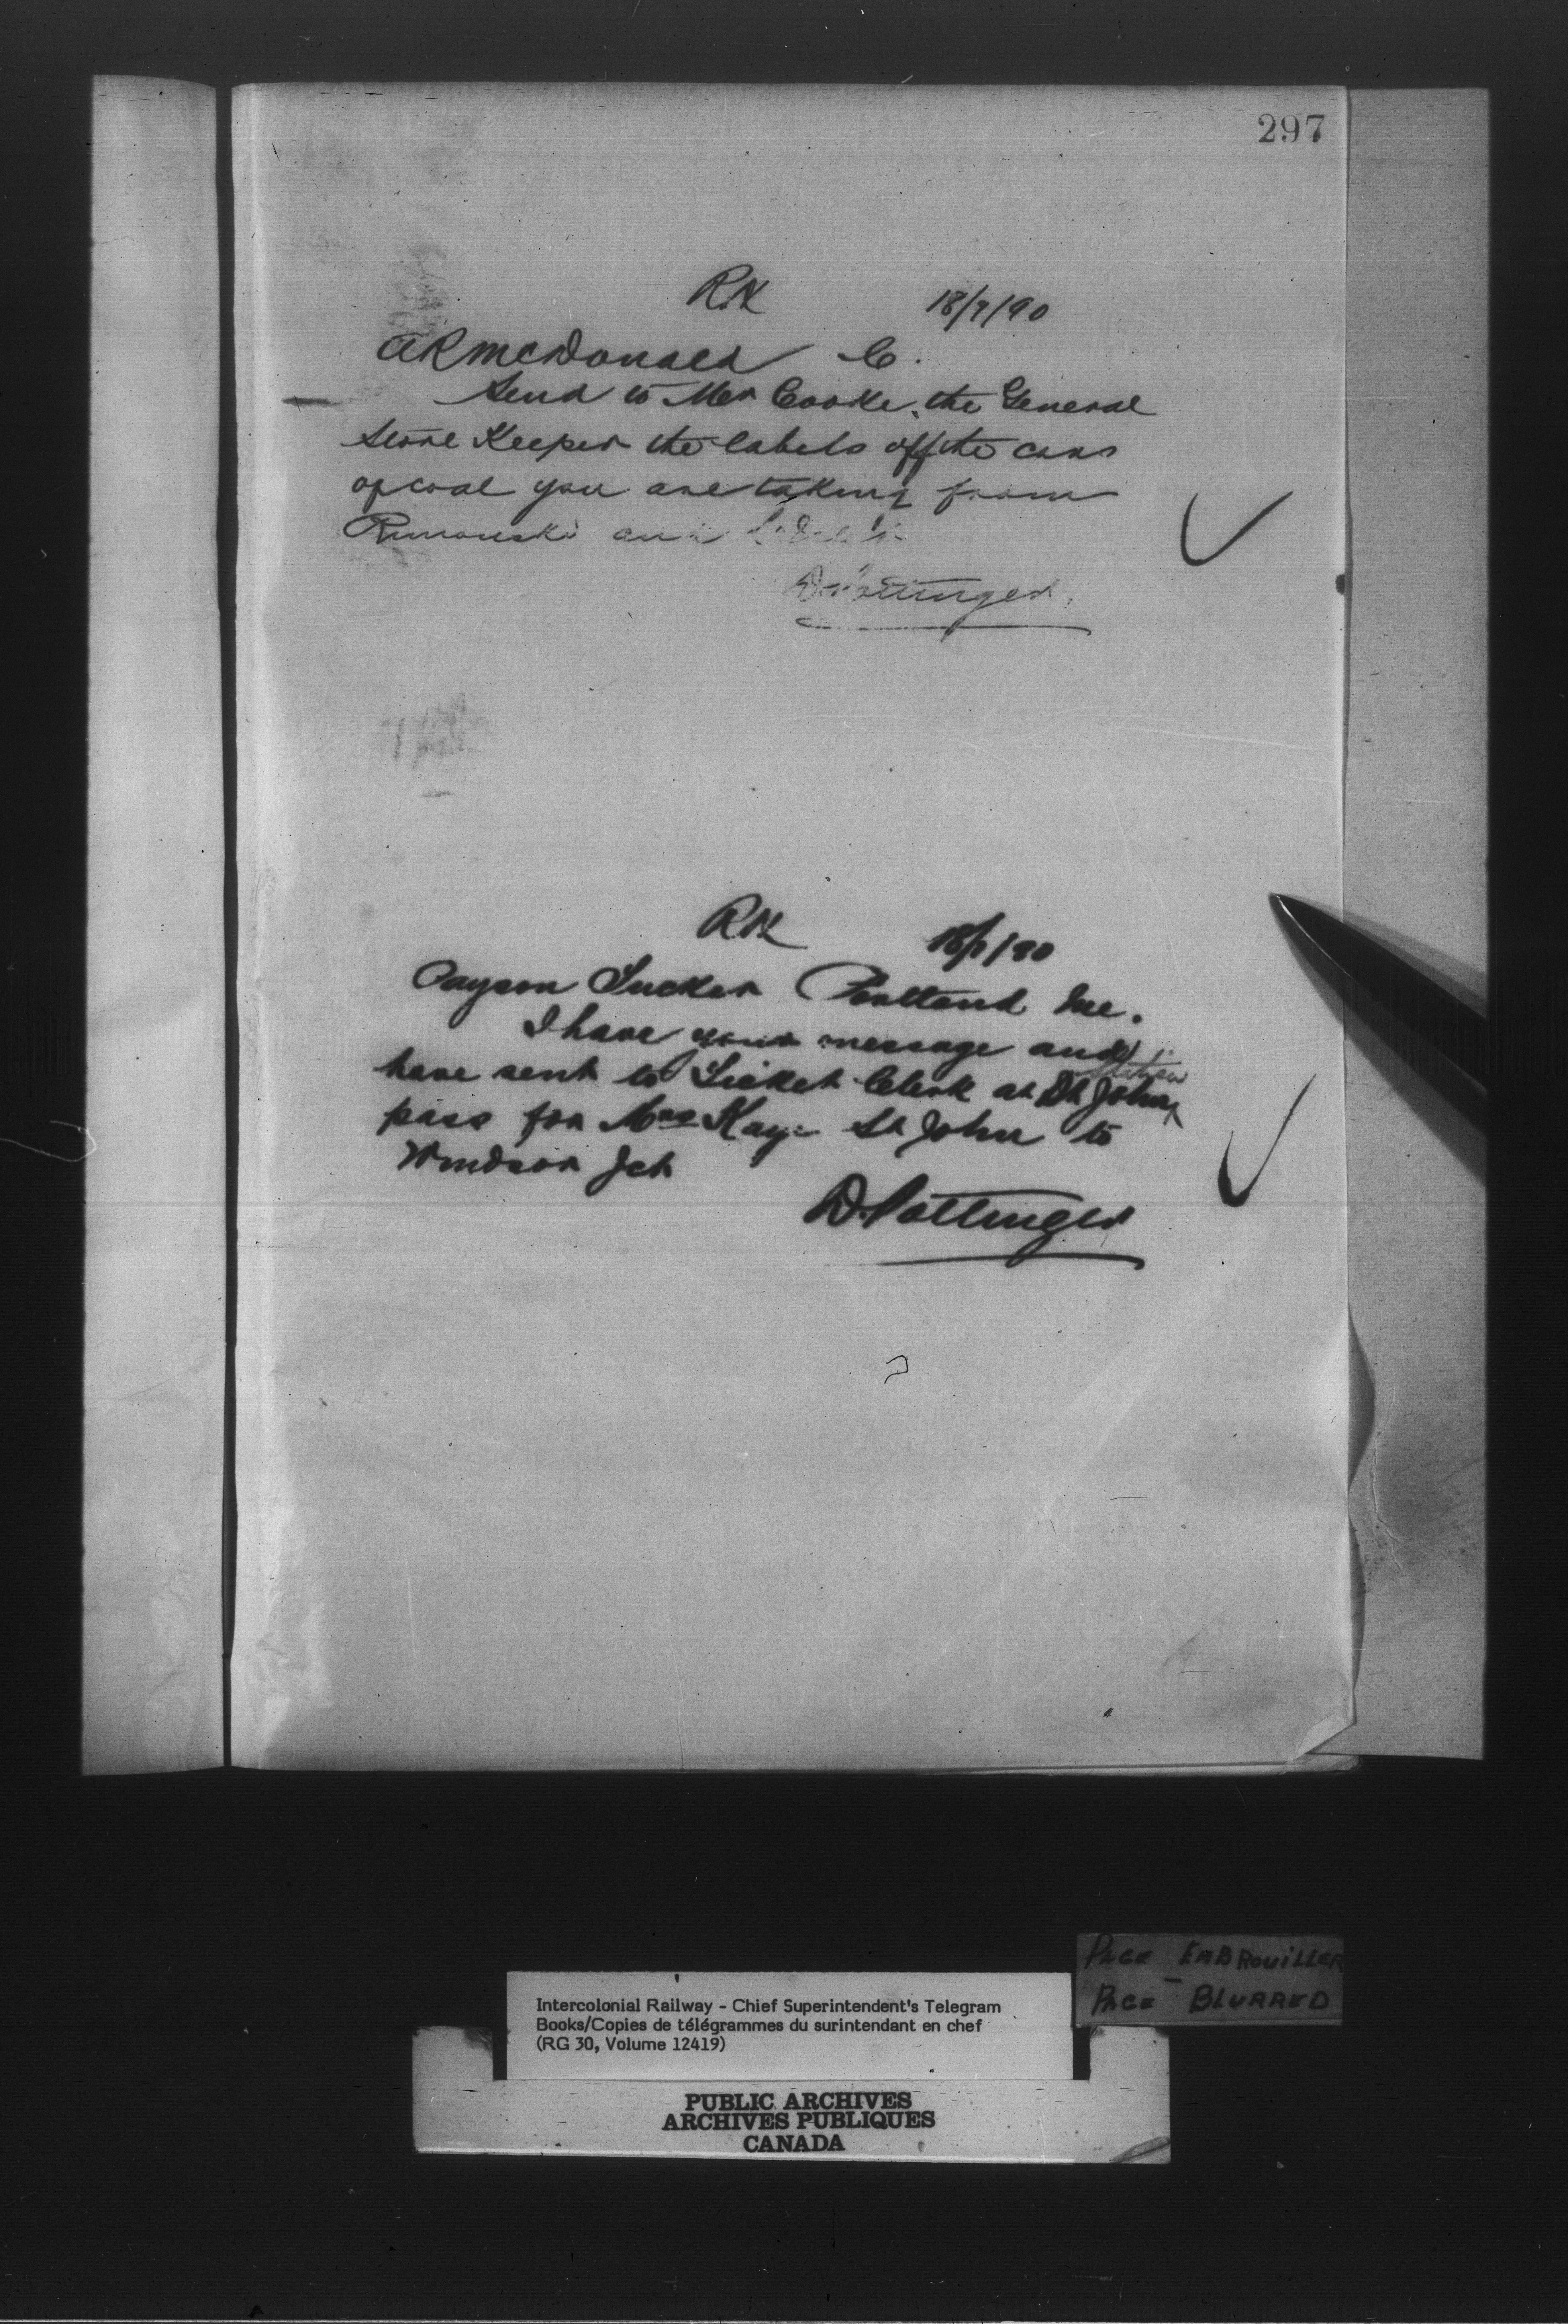 297
RK 18/7/90
A R McDonald C.
Send to Mr Cooke, the General
Store Keeper the labels off the cars
of coal you are taking from
Rimouski and
D. Pottinger.
RK 18/7/90
Payson Tucker Portland Me.
I have your message and
have sent to Ticket Clerk at St John station
pass for Mrs Kaye St John to
Windsor Jct
D. Pottinger
PAGE EMBROUILLER
PAGE BLURRED
Intercolonial Railway - Chief Superintendent's Telegram
Books/Copies de télégrammes du surintendant en chef
(RG 30, Volume 12419)
PUBLIC ARCHIVES
ARCHIVES PUBLIQUES
CANADA